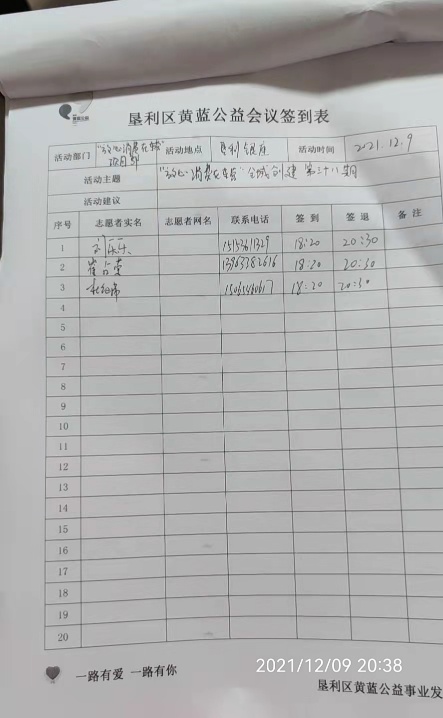 垦利区黄蓝公益会议签到表
活动部门 "放心消费在核" 项目部 活动地点 垦利银座 活动时间 2021.12.9
活动主题 "放心消费在 全城创建 第三十八期
活动建议
序号 志愿者实名 志愿者网名 联系电话 签 到 签 退 备 注
1 18:20 20:30
2 13963382616 18:20 20:30
3 18:20 20:30
4
5
6
7
8
9
10
11
12
13
14
15
16
17
18
19
20
一路有爱 一路有你
2021/12/09 20:38
垦利区黄蓝公益事业发